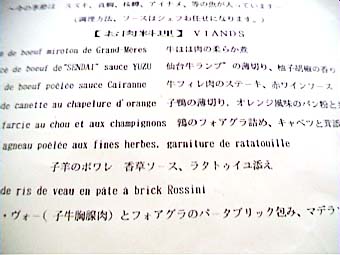 ～今の季節は スズキ、真鯛、桜鱒、アイナメ、等の魚が入っています～
(調理方法、ソースはシェフお任せになります。)
【お肉料理】 VIANDS
de boeuf miroton de Grand-Meres 牛ほほ肉の柔らか煮
ce de boeuf de"SENDAI" sauce YUZU 仙台牛ランプ の薄切り、柚子胡椒の香り
de boeuf poêlée sauce Cairanne 牛フィレ肉のステーキ、赤ワインソース
de canette au chapelure d'orange 子鴨の薄切り、オレンジ風味のパン粉と
farcie au chou et aux champignons 鶉のフォアグラ詰め、キャベツと茸添
agneau poêlée aux fines herbes, garniture de ratatouille
子羊のポワレ 香草ソース、ラタトゥイユ添え
de ris de veau en pâte à brick Rossini
・ヴォー(子牛胸腺肉)とフォアグラのパータブリック包み、マデラソ